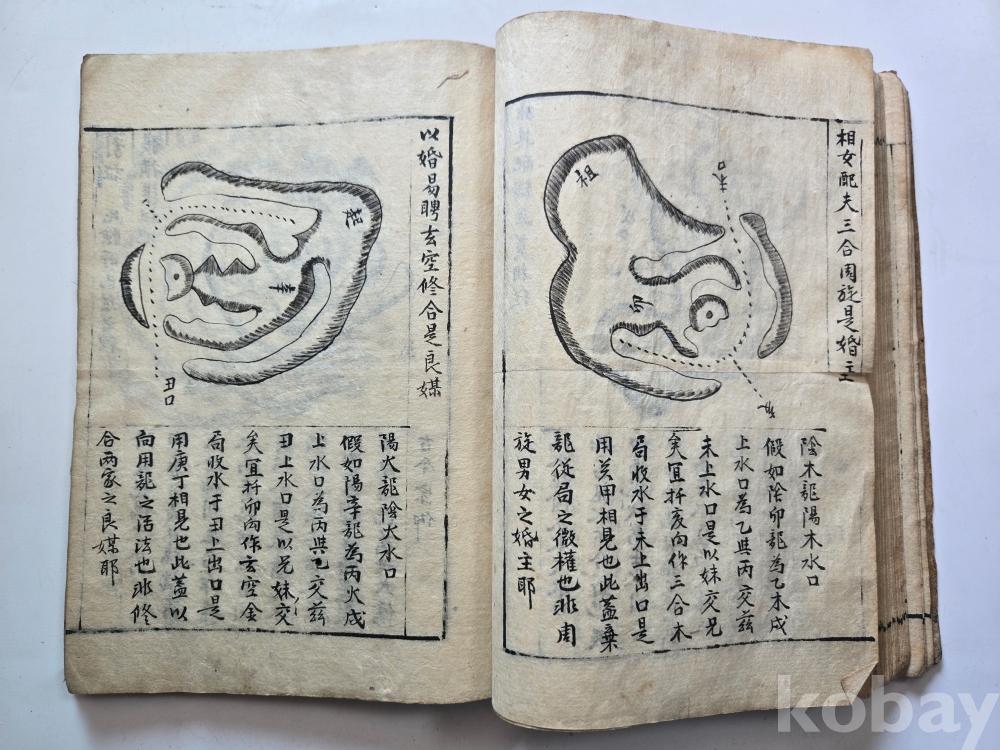 相女配夫三合周旋是婚主
祖
未口
陰木龍陽木水口
假如陰卯龍為乙木戌
上水口為乙與丙交茲
未上水口是以妹交兄
矣宜扦亥向作三合木
局收水于未上出口是
用癸甲相見也此蓋棄
龍從局之微權也非周
旋男女之婚主耶
以婚易聘玄空修合是良媒
起
辛
丑口
陽火龍陰火水口
假如陽辛龍為丙火戌
上水口為丙與乙交茲
丑上水口是以兄妹交
矣宜扦卯向作玄空金
局收水于丑上出口是
用庚丁相見也此蓋以
向用龍之活法也非修
合兩家之良媒耶
kobay